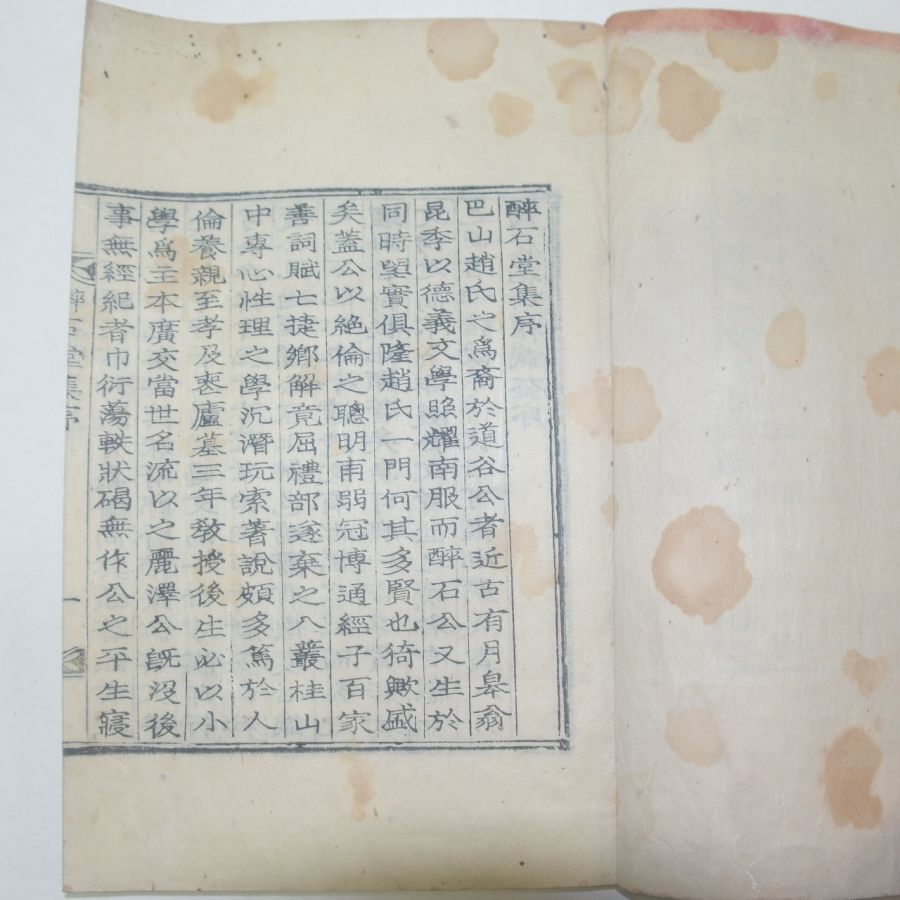 醉石堂集序
巴山趙氏之爲裔於道谷公者近古有月皐翁
昆季以德義文學照耀南服而醉石公又生於
同時望實俱隆趙氏一門何其多賢也猗歟盛
矣蓋公以絶倫之聰明甫弱冠博通經子百家
善詞賦七捷鄕解竟屈禮部遂棄之入叢桂山
中專心性理之學沉潛玩索著說頗多篤於人
倫養親至孝及喪廬墓三年敎授後生必以小
學爲主本廣交當世名流以之麗澤公旣沒後
事無經紀者巾衍蕩軼狀碣無作公之平生寢
醉石堂集序
一